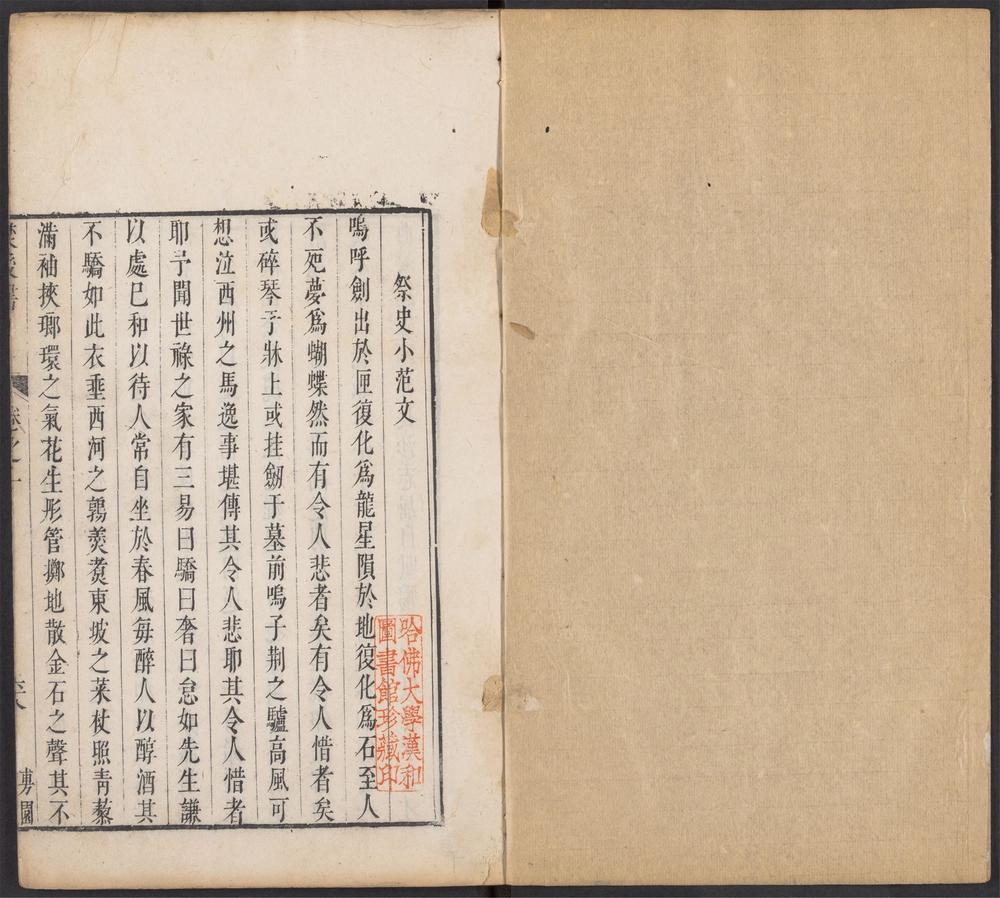 祭史小范文
嗚呼劍出於匣復化爲龍星隕於地復化爲石至人
不死夢爲蝴蝶然而有令人悲者矣有令人惜者矣
或碎琴于牀上或挂劒于墓前嗚子荆之驢高風可
想泣西州之馬逸事堪傳其令人悲耶其令人惜者
耶予聞世祿之家有三易曰驕曰奢曰怠如先生謙
以處已和以待人常自坐於春風每醉人以醇酒其
不驕如此衣垂西河之鶉羮煑東坡之菜杖照靑藜
滿袖挾瑯環之氣花生彤管擲地散金石之聲其不
卷之十
六
專園
哈佛大學漢和
圖書館珍藏印